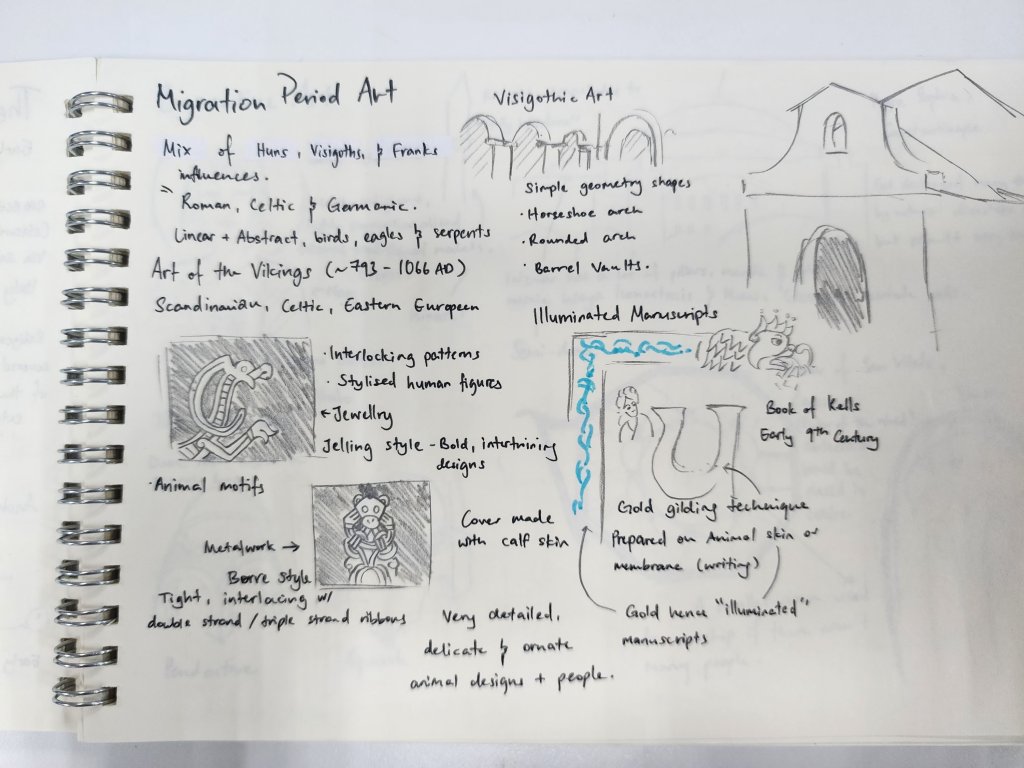 Migration Period Art
Mix of Huns, Visigoths, & Franks
influences.
Roman, Celtic & Germanic.
Linear + Abstract, birds, eagles & serpents
Art of the Vikings (~793 - 1066 AD)
Scandinavian, Celtic, Eastern European
· Interlocking patterns
· Stylised human figures
← Jewellry
Jelling style - Bold, intertwining
designs
· Animal motifs
Metalwork →
Borre style
Tight, interlacing w/
double strand / triple strand ribbons
Visigothic Art
Simple geometry shapes
· Horseshoe arch
· Rounded arch
· Barrel Vaults.
Illuminated Manuscripts
Book of Kells
Early 9th Century
Cover made
with calf skin
Gold gilding technique
Prepared on Animal skin or
membrane (writing)
Gold hence "illuminated"
manuscripts
Very detailed,
delicate & ornate
animal designs + people.